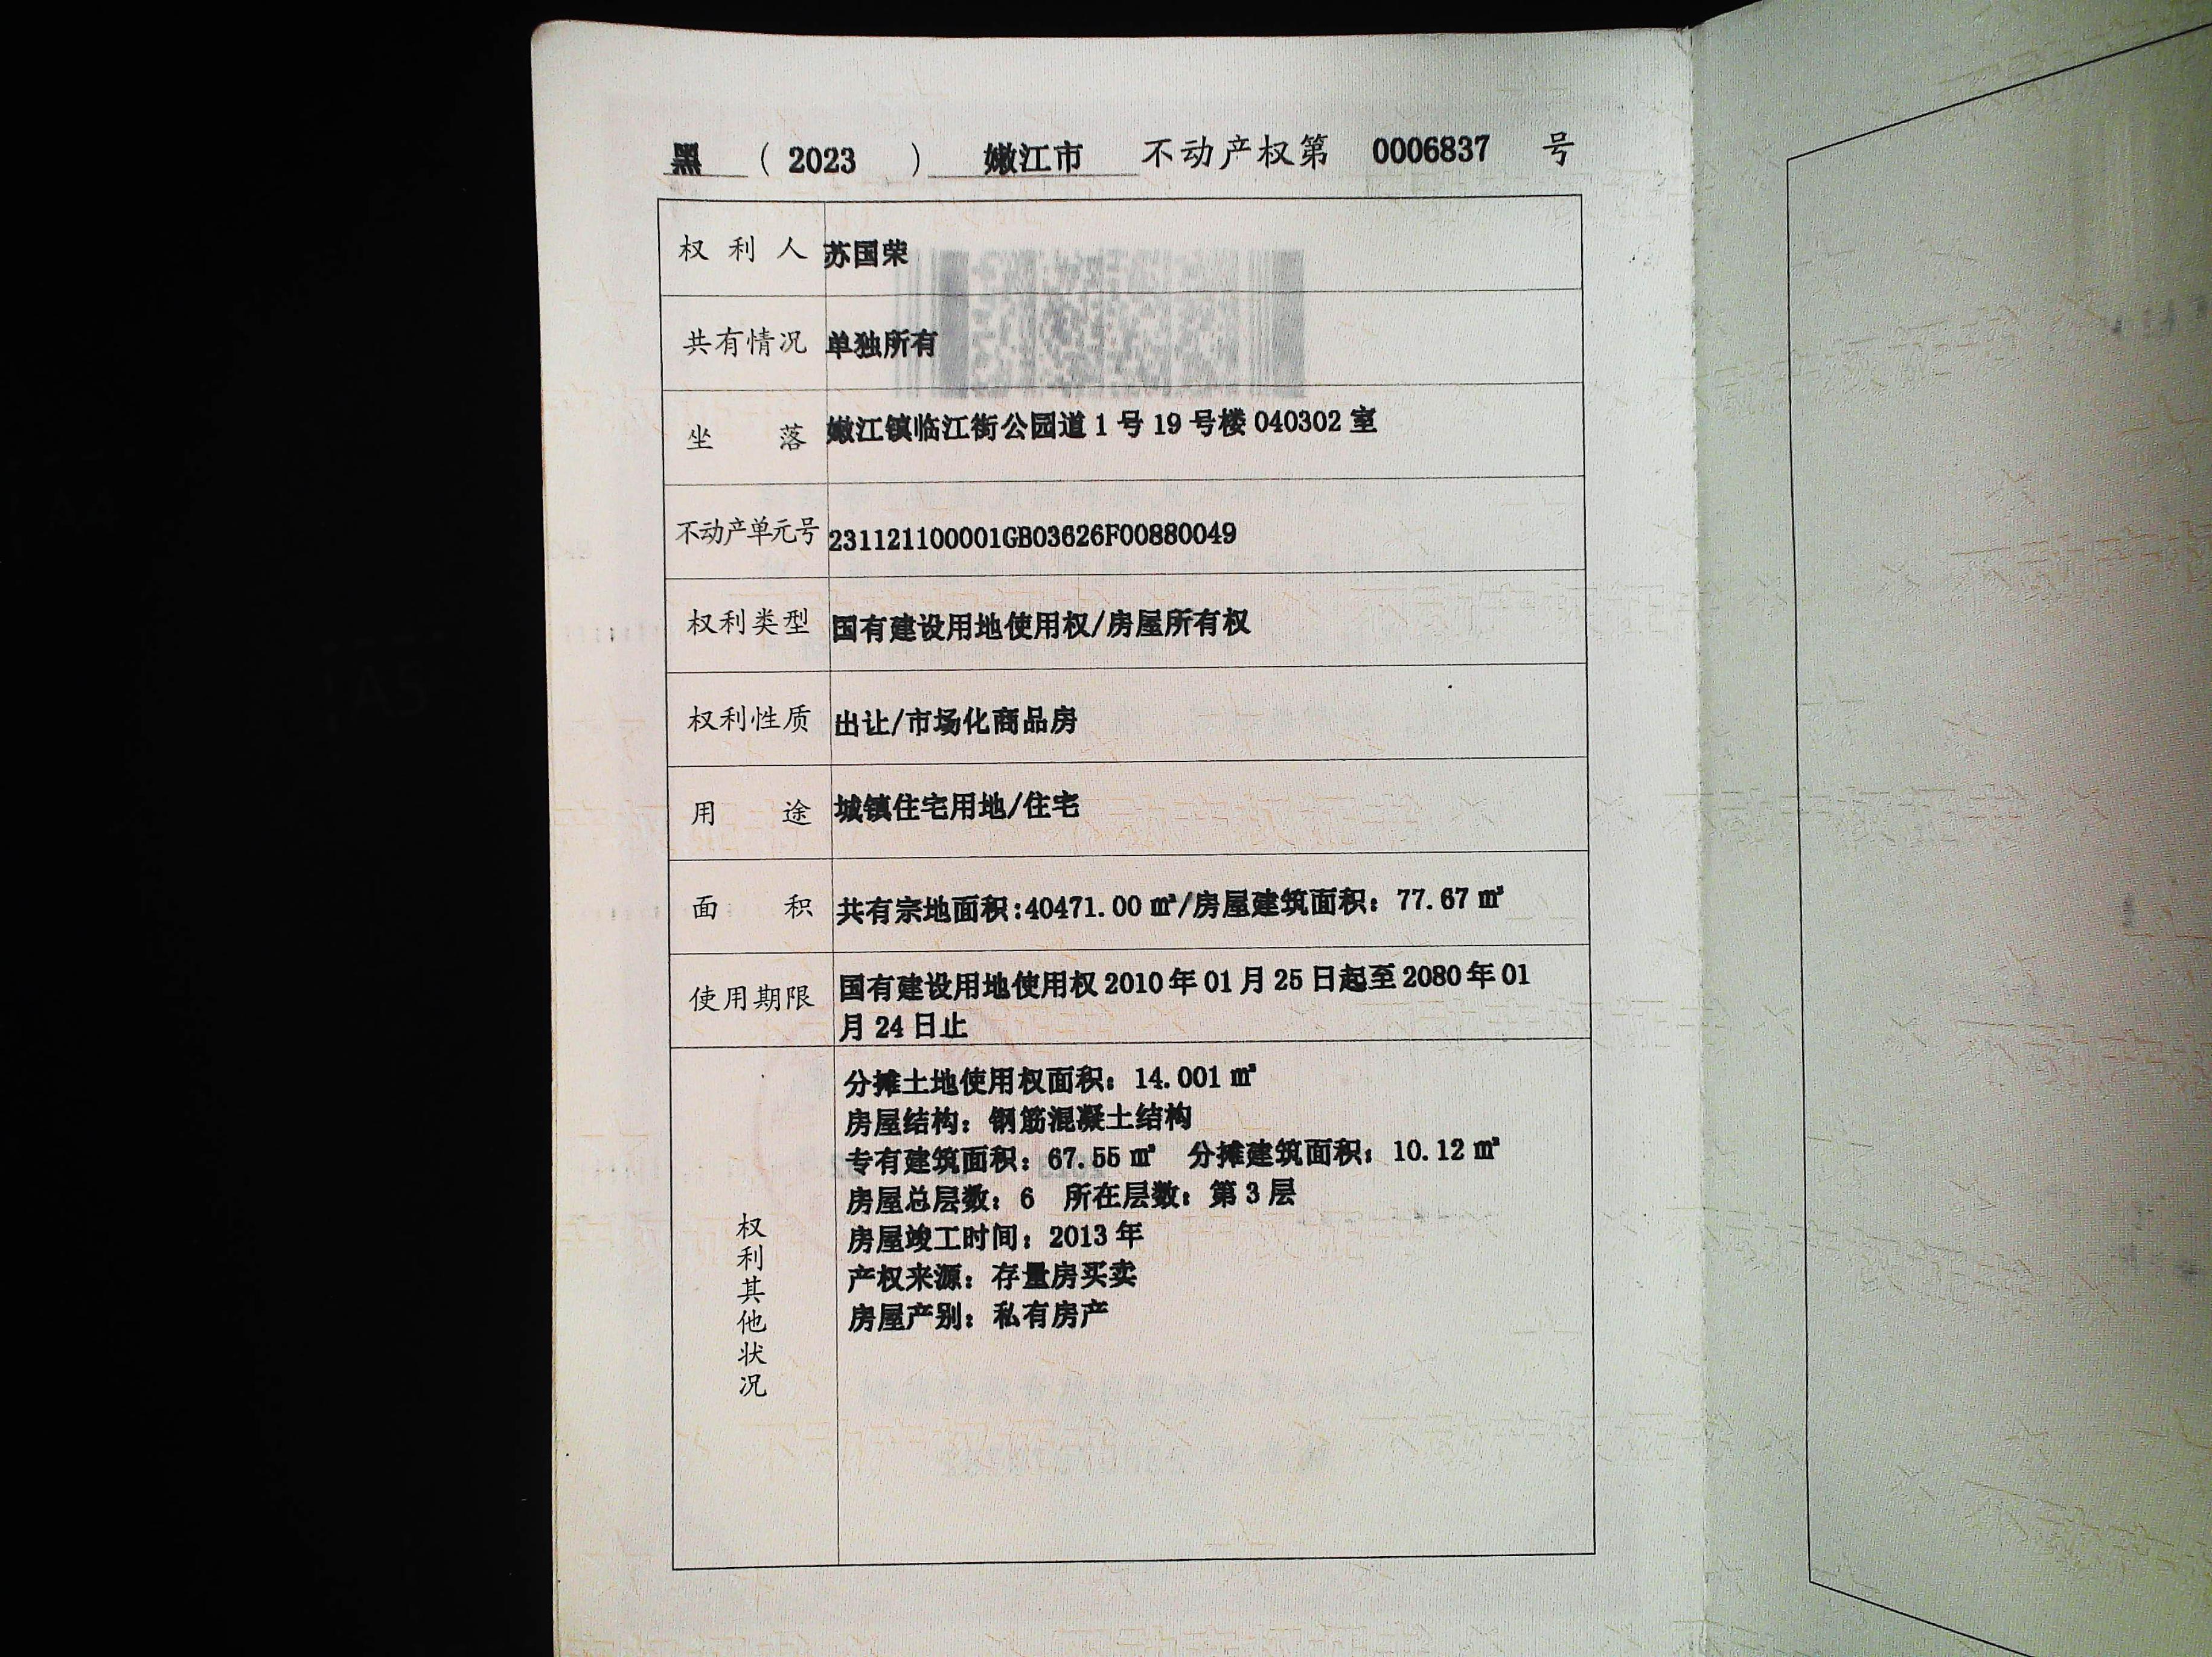 黑 ( 2023 ) 嫩江市 不动产权第 0006837 号
权利人 苏国荣
共有情况 单独所有
坐落 嫩江镇临江街公园道1号19号楼040302室
不动产单元号 231121100001GB03626F00880049
权利类型 国有建设用地使用权/房屋所有权
权利性质 出让/市场化商品房
用途 城镇住宅用地/住宅
面积 共有宗地面积:40471.00㎡/房屋建筑面积：77.67㎡
使用期限 国有建设用地使用权2010年01月25日起至2080年01
月24日止
权利其他状况
分摊土地使用权面积：14.001㎡
房屋结构：钢筋混凝土结构
专有建筑面积：67.55㎡ 分摊建筑面积：10.12㎡
房屋总层数：6 所在层数：第3层
房屋竣工时间：2013年
产权来源：存量房买卖
房屋产别：私有房产